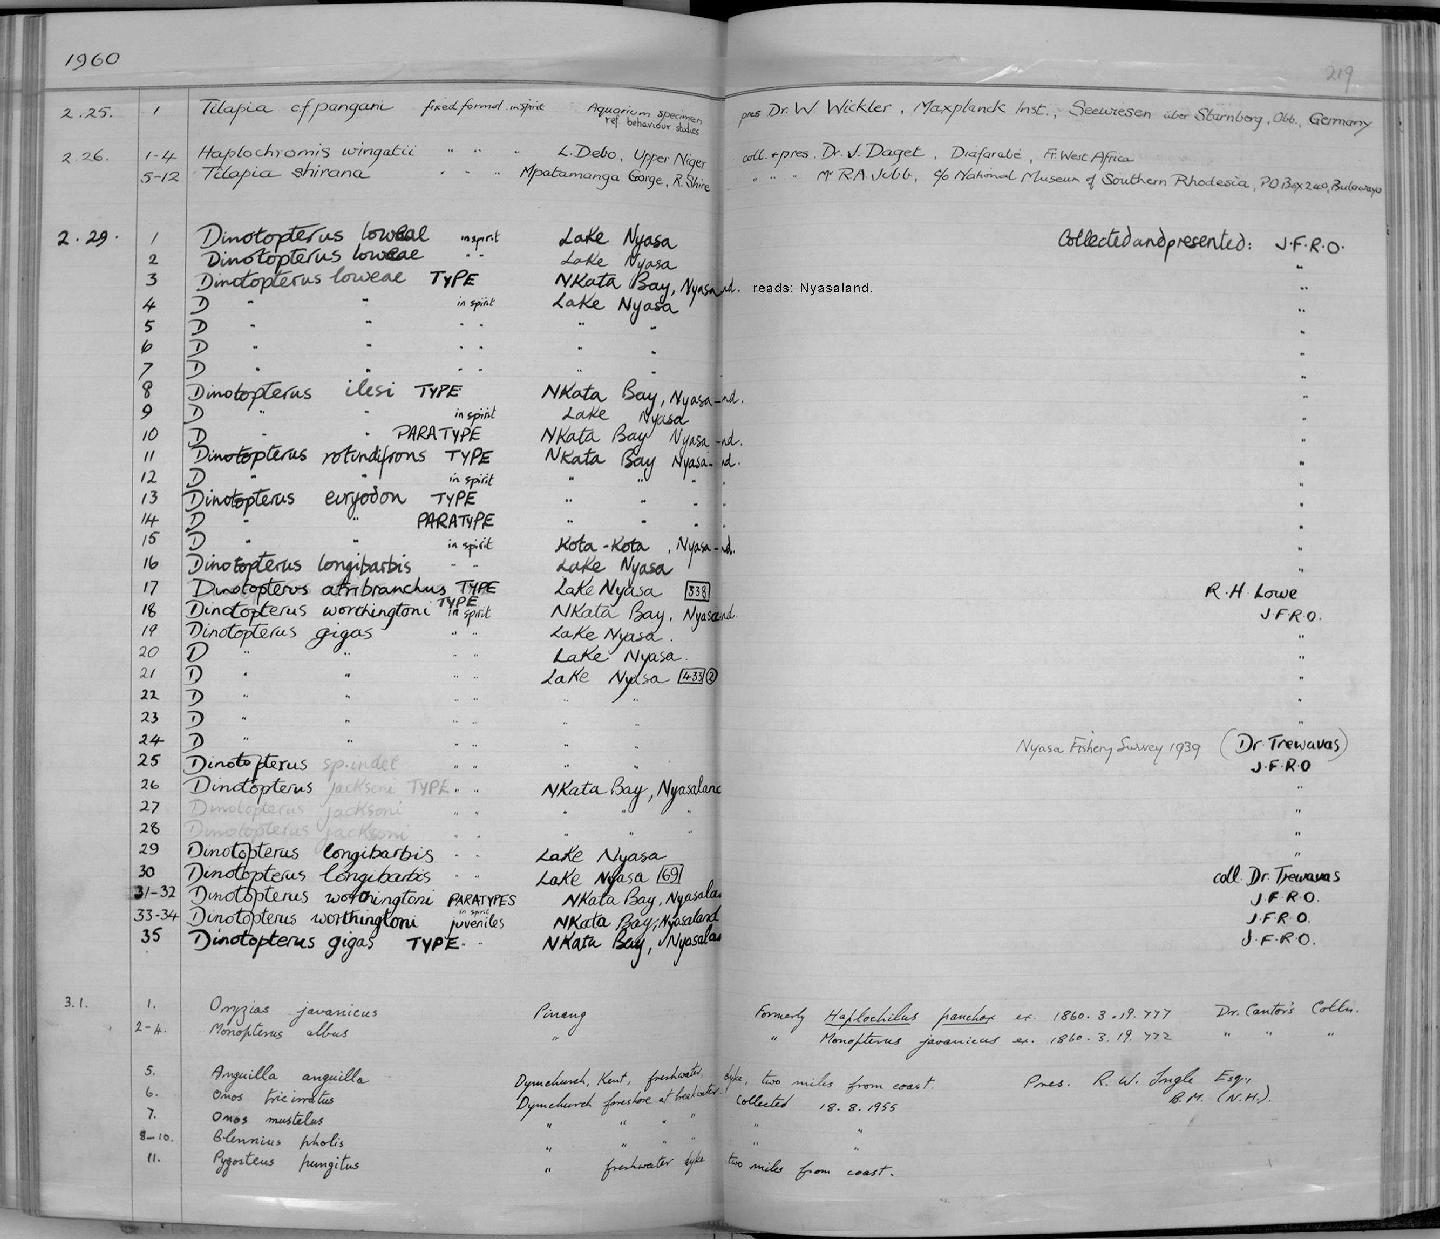 1960
219
2.25. 1 Tilapia cf pangani fixed formol. in spirit Aquarium specimen ref behaviour studies pres Dr. W Wickler, Maxplanck Inst., Seewiesen über Starnberg, Obb., Germany
2.26. 1-4 Haplochromis wingatii " " " L. Debo, Upper Niger coll. + pres. Dr. J. Daget, Diafarabé, Fr. West Africa
5-12 Tilapia shirana " " " Mpatamanga Gorge, R. Shire " " " Mr R.A Jubb, c/o National Museum of Southern Rhodesia, PO Box 240, Bulawayo
2.29. 1 Dinotopterus loweae in spirit Lake Nyasa Collected and presented: J.F.R.O.
2 Dinotopterus loweae " " Lake Nyasa "
3 Dinotopterus loweae TYPE NKata Bay, Nyasand. reads: Nyasaland. "
4 D " " in spirit Lake Nyasa "
5 D " " " " " " "
6 D " " " " " "
7 D " " " " " " "
8 Dinotopterus ilesi TYPE NKata Bay, Nyasa-nd. "
9 D " " in spirit Lake Nyasa "
10 D " " PARATYPE NKata Bay Nyasa-nd. "
11 Dinotopterus rotundifrons TYPE NKata Bay Nyasa-nd. "
12 D " " in spirit " " " " "
13 Dinotopterus euryodon TYPE " " " " "
14 D " " PARATYPE " " " " "
15 D " " in spirit Kota-Kota, Nyasa-nd. "
16 Dinotopterus longibarbis " " Lake Nyasa "
17 Dinotopterus atribranchus TYPE Lake Nyasa 338 R.H. Lowe
18 Dinotopterus worthingtoni TYPE in spirit NKata Bay, Nyasand. J.F.R.O.
19 Dinotopterus gigas " " Lake Nyasa. "
20 D " " " " Lake Nyasa. "
21 D " " " " Lake Nyasa 433 2 "
22 D " " " " " " "
23 D " " " " " " "
24 D " " " " " " Nyasa Fishery Survey 1939 (Dr Trewavas)
25 Dinotopterus sp. indet " " " " J.F.R.O
26 Dinotopterus jacksoni TYPE " " NKata Bay, Nyasaland "
27 Dinotopterus jacksoni " " " " " "
28 Dinotopterus jacksoni " " " " " "
29 Dinotopterus longibarbis " " Lake Nyasa "
30 Dinotopterus longibarbis " " Lake Nyasa 69 coll. Dr. Trewavas
31-32 Dinotopterus worthingtoni PARATYPES in spirit NKata Bay, Nyasalan J.F.R.O.
33-34 Dinotopterus worthingtoni juveniles NKata Bay, Nyasaland J.F.R.O.
35 Dinotopterus gigas TYPE " " NKata Bay, Nyasalan J.F.R.O.
3.1. 1. Oryzias javanicus Pinang Formerly Haplochilus panchax ex. 1860.3.19.777 Dr. Cantor's Colln.
2-4. Monopterus albus " " Monopterus javanicus ex. 1860.3.19.772 " " "
5. Anguilla anguilla Dymchurch, Kent, freshwater dyke, two miles from coast. Pres. R. W. Ingle Esq., B.M. (N.H.).
6. Onos tricirratus Dymchurch foreshore at Collected 18.8.1955
7. Onos mustelus " " " " " "
8-10. Blennius pholis " " " " " "
11. Pygosteus pungitus " freshwater dyke two miles from coast.